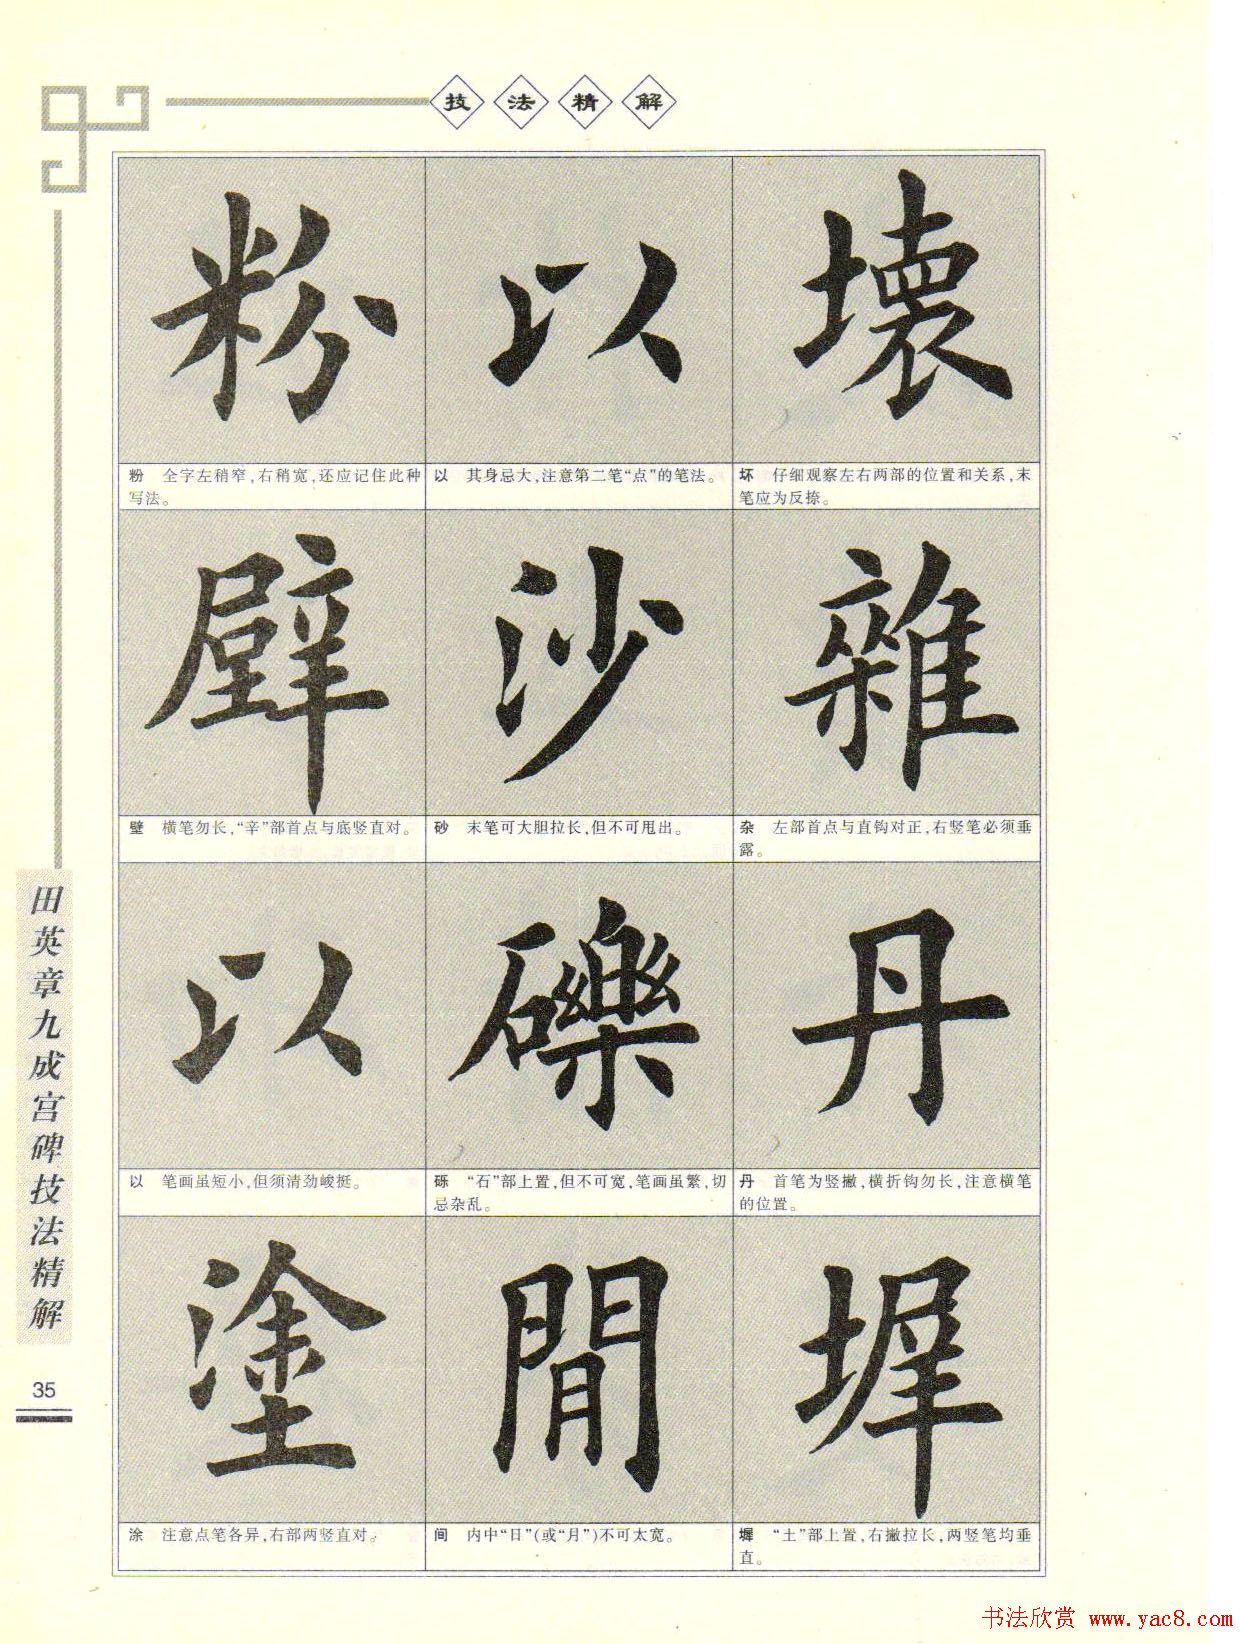 技法精解
粉 以 壞
粉 全字左稍窄,右稍宽,还应记住此种
写法。
以 其身忌大,注意第二笔“点”的笔法。
坏 仔细观察左右两部的位置和关系,末
笔应为反捺。
壁 沙 雜
壁 横笔勿长,“辛”部首点与底竖直对。
砂 末笔可大胆拉长,但不可甩出。
杂 左部首点与直钩对正,右竖笔必须垂
露。
以 礫 丹
以 笔画虽短小,但须清劲峻挺。
砾 “石”部上置,但不可宽,笔画虽繁,切
忌杂乱。
丹 首笔为竖撇,横折钩勿长,注意横笔
的位置。
塗 間 墀
涂 注意点笔各异,右部两竖直对。
间 内中“日”(或“月”)不可太宽。
墀 “土”部上置,右撇拉长,两竖笔均垂
直。
田英章九成宫碑技法精解
35
书法欣赏 www.yac8.com